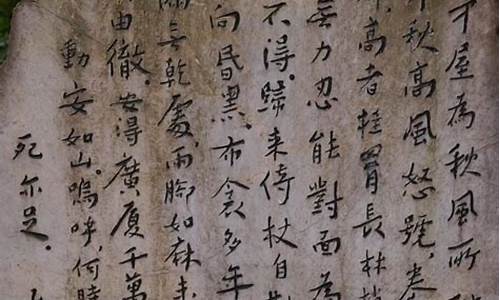 屋為秋風所
秋高風怒號，卷
高者挂罥長林
無力忍能對面為
不得。歸來倚杖自
向昏黑。布衾多年
無乾處，雨腳如麻未
由徹。安得廣厦千萬
動安如山。嗚呼，何時
死亦足。